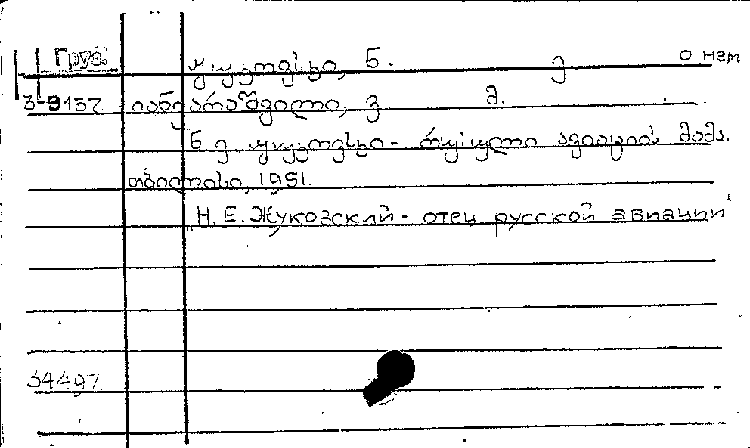 Груз. ჟუკოვსკი, ნ. ე. о нем
3-9137 იანქარაშვილი, ვ. მ.
ნ. ე. ჟუკოვსკი - რუსული ავიაციის მამა.
თბილისი, 1951.
Н. Е. Жуковский - отец русской авиации
34497